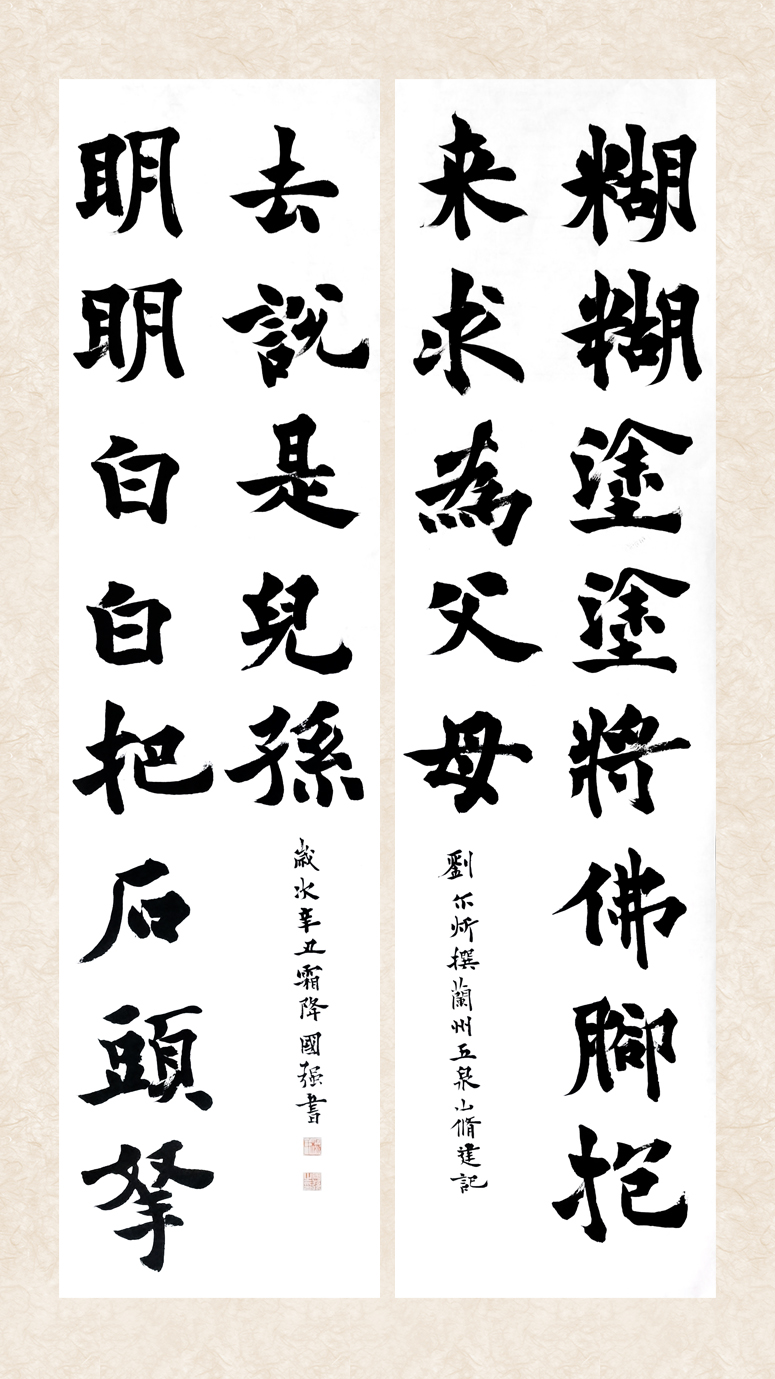 糊糊塗塗將佛腳抱
来求為父母
劉尔炘撰蘭州五泉山脩建記
明明白白把石頭拏
去說是兒孫
歲次辛丑霜降國强書